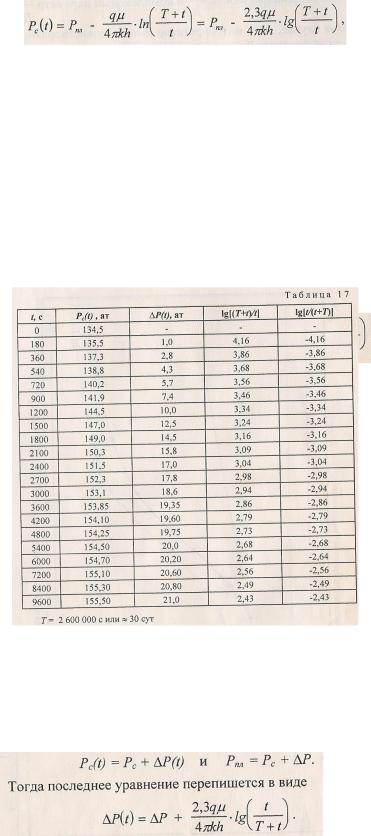 P_c(t) = P_пл - qμ/4πkh · ln((T + t)/t) = P_пл - 2,3qμ/4πkh · lg((T + t)/t) ,
Таблица 17
t, с P_c(t) , ат ΔP(t), ат lg[(T+t)/t] lg[t/(t+T)]
0 134,5 - - -
180 135,5 1,0 4,16 -4,16
360 137,3 2,8 3,86 -3,86
540 138,8 4,3 3,68 -3,68
720 140,2 5,7 3,56 -3,56
900 141,9 7,4 3,46 -3,46
1200 144,5 10,0 3,34 -3,34
1500 147,0 12,5 3,24 -3,24
1800 149,0 14,5 3,16 -3,16
2100 150,3 15,8 3,09 -3,09
2400 151,5 17,0 3,04 -3,04
2700 152,3 17,8 2,98 -2,98
3000 153,1 18,6 2,94 -2,94
3600 153,85 19,35 2,86 -2,86
4200 154,10 19,60 2,79 -2,79
4800 154,25 19,75 2,73 -2,73
5400 154,50 20,0 2,68 -2,68
6000 154,70 20,20 2,64 -2,64
7200 155,10 20,60 2,56 -2,56
8400 155,30 20,80 2,49 -2,49
9600 155,50 21,0 2,43 -2,43
T = 2 600 000 с или ≈ 30 сут
P_c(t) = P_c + ΔP(t) и P_пл = P_c + ΔP.
Тогда последнее уравнение перепишется в виде
ΔP(t) = ΔP + 2,3qμ/4πkh · lg(t/(T + t)) .